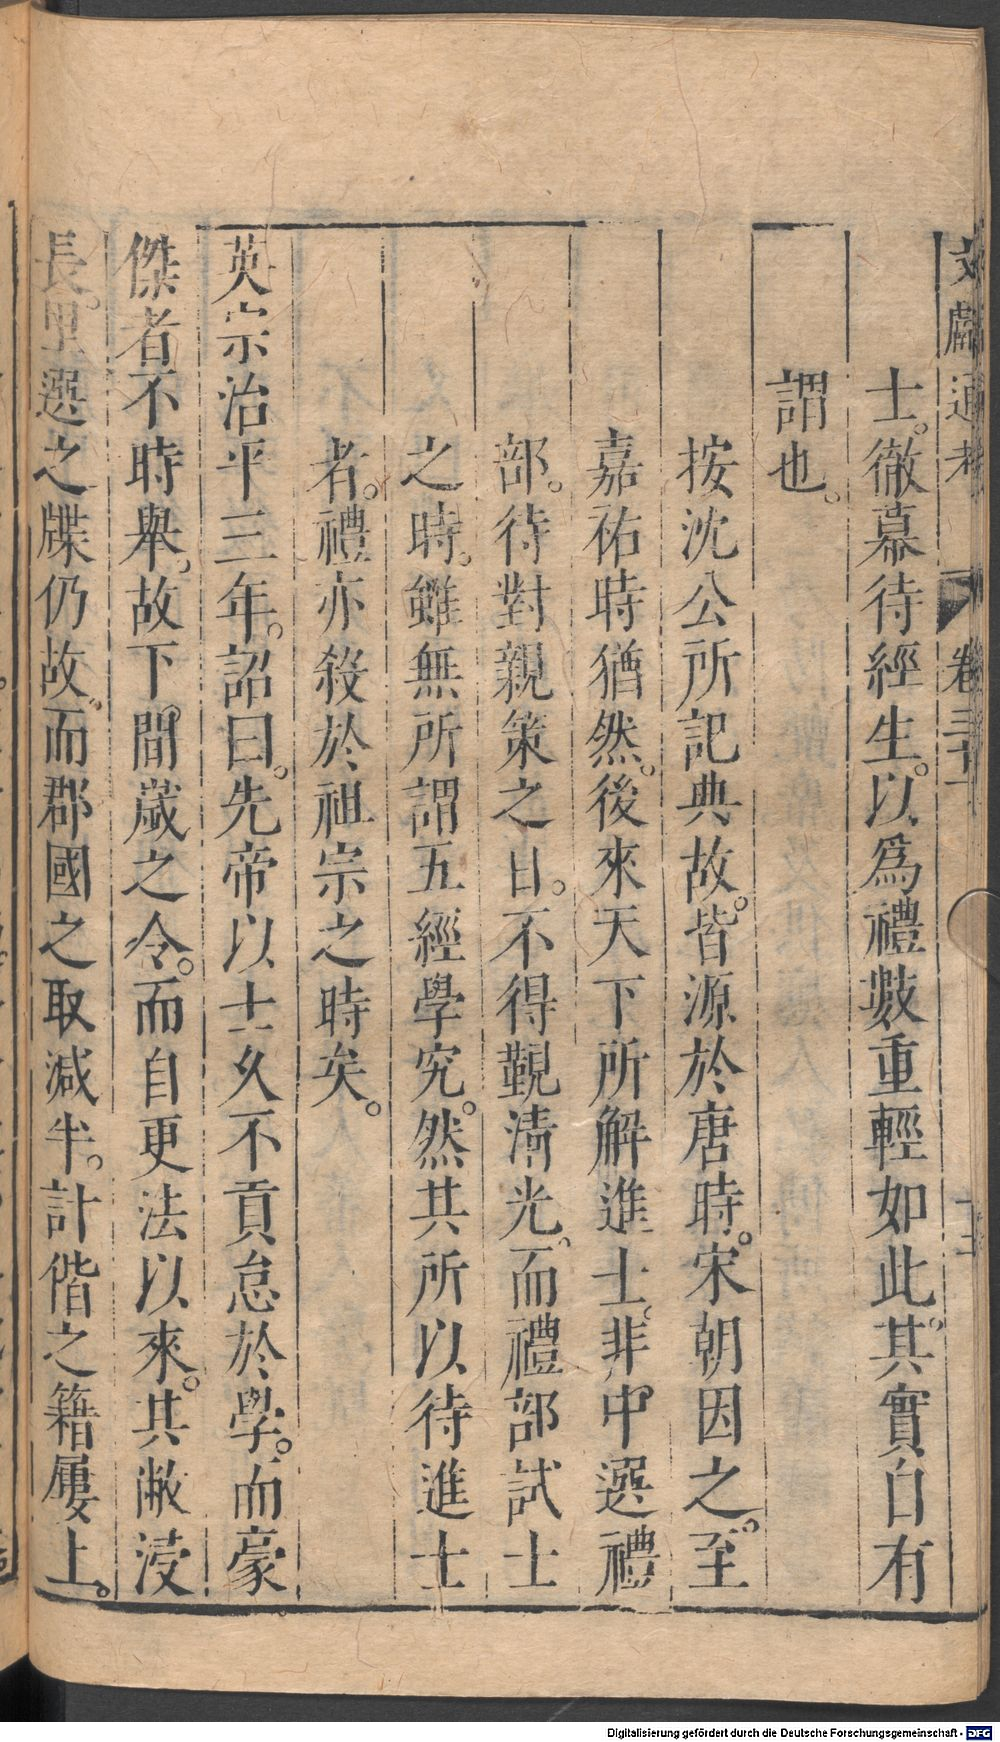 文獻通考 卷三十一 十三
士。徹幕待經生。以爲禮數重輕如此。其實自有
謂也。
按沈公所記典故。皆源於唐時。宋朝因之。至
嘉祐時猶然。後來天下所解進士。非中選禮
部。待對親策之日。不得覲淸光。而禮部試士
之時。雖無所謂五經學究。然其所以待進士
者。禮亦殺於祖宗之時矣。
英宗治平三年。詔曰。先帝以士久不貢怠於學。而豪
傑者不時舉。故下間歲之令。而自更法以來。其敝浸
長。里選之牒仍故。而郡國之取減半。計偕之籍屢上。
Digitalisierung gefördert durch die Deutsche Forschungsgemeinschaft - DFG